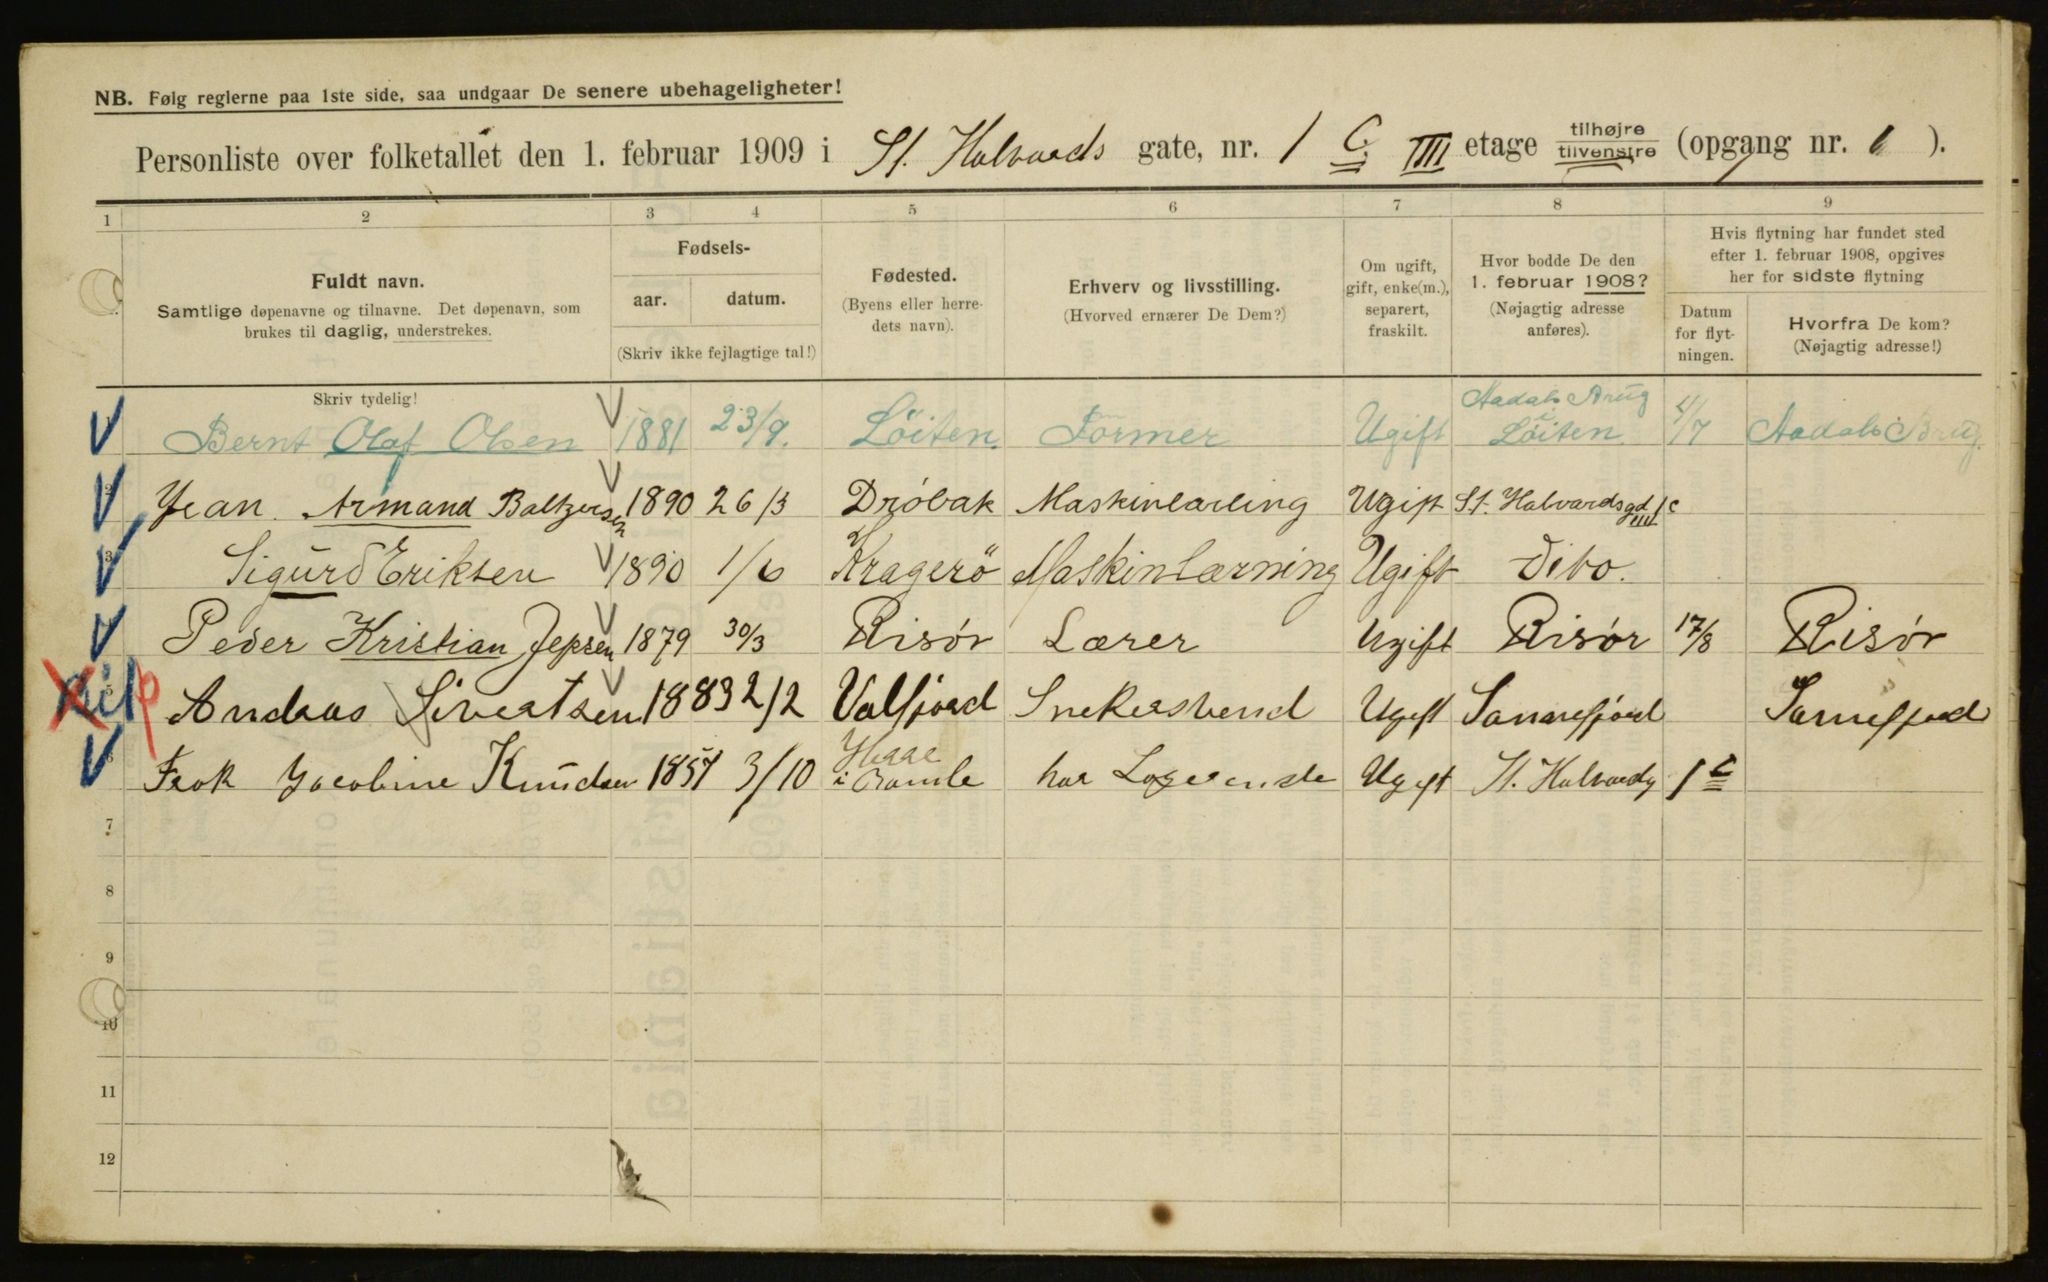 NB. Følg reglerne paa 1ste side, saa undgaar De senere ubehageligheter!
Personliste over folketallet den 1. februar 1909 i St. Halvards gate, nr. 1 C III etage tilhøjre tilvenstre (opgang nr. 1 ).
1 2 3 4 5 6 7 8 9
Fuldt navn.
Samtlige døpenavne og tilnavne. Det døpenavn, som
brukes til daglig, understrekes.
Fødsels-
aar. datum.
(Skriv ikke fejlagtige tal!)
Fødested.
(Byens eller herre-
dets navn).
Erhverv og livsstilling.
(Hvorved ernærer De Dem?)
Om ugift,
gift, enke(m.),
separert,
fraskilt.
Hvor bodde De den
1. februar 1908?
(Nøjagtig adresse
anføres).
Hvis flytning har fundet sted
efter 1. februar 1908, opgives
her for sidste flytning
Datum
for flyt-
ningen.
Hvorfra De kom?
(Nøjagtig adresse!)
Skriv tydelig!
1 Bernt Olaf Olsen 1881 23/9. Löiten. Former Ugift Aadals Brug i Löiten 4/7 Aadals Brug.
2 Jean Armand Baltzersen 1890 26/3 Dröbak Maskinlærling Ugift St. Halvardsgd 1c III
3 Sigurd Eriksen 1890 1/6 Kragerö Maskinlærning Ugift Dito.
4 Peder Kristian Jepsen 1879 30/3 Risör Lærer Ugift Risör 17/8 Risör
5 Andreas Sivertsen 1883 2/2 Valfjord Snekersvend Ugift Sannefjord Sannefjord
6 Frøk Jacobine Knudsen 1857 3/10 i Bamle har Logerende Ugift St. Halvardg 1 C
7
8
9
10
11
12